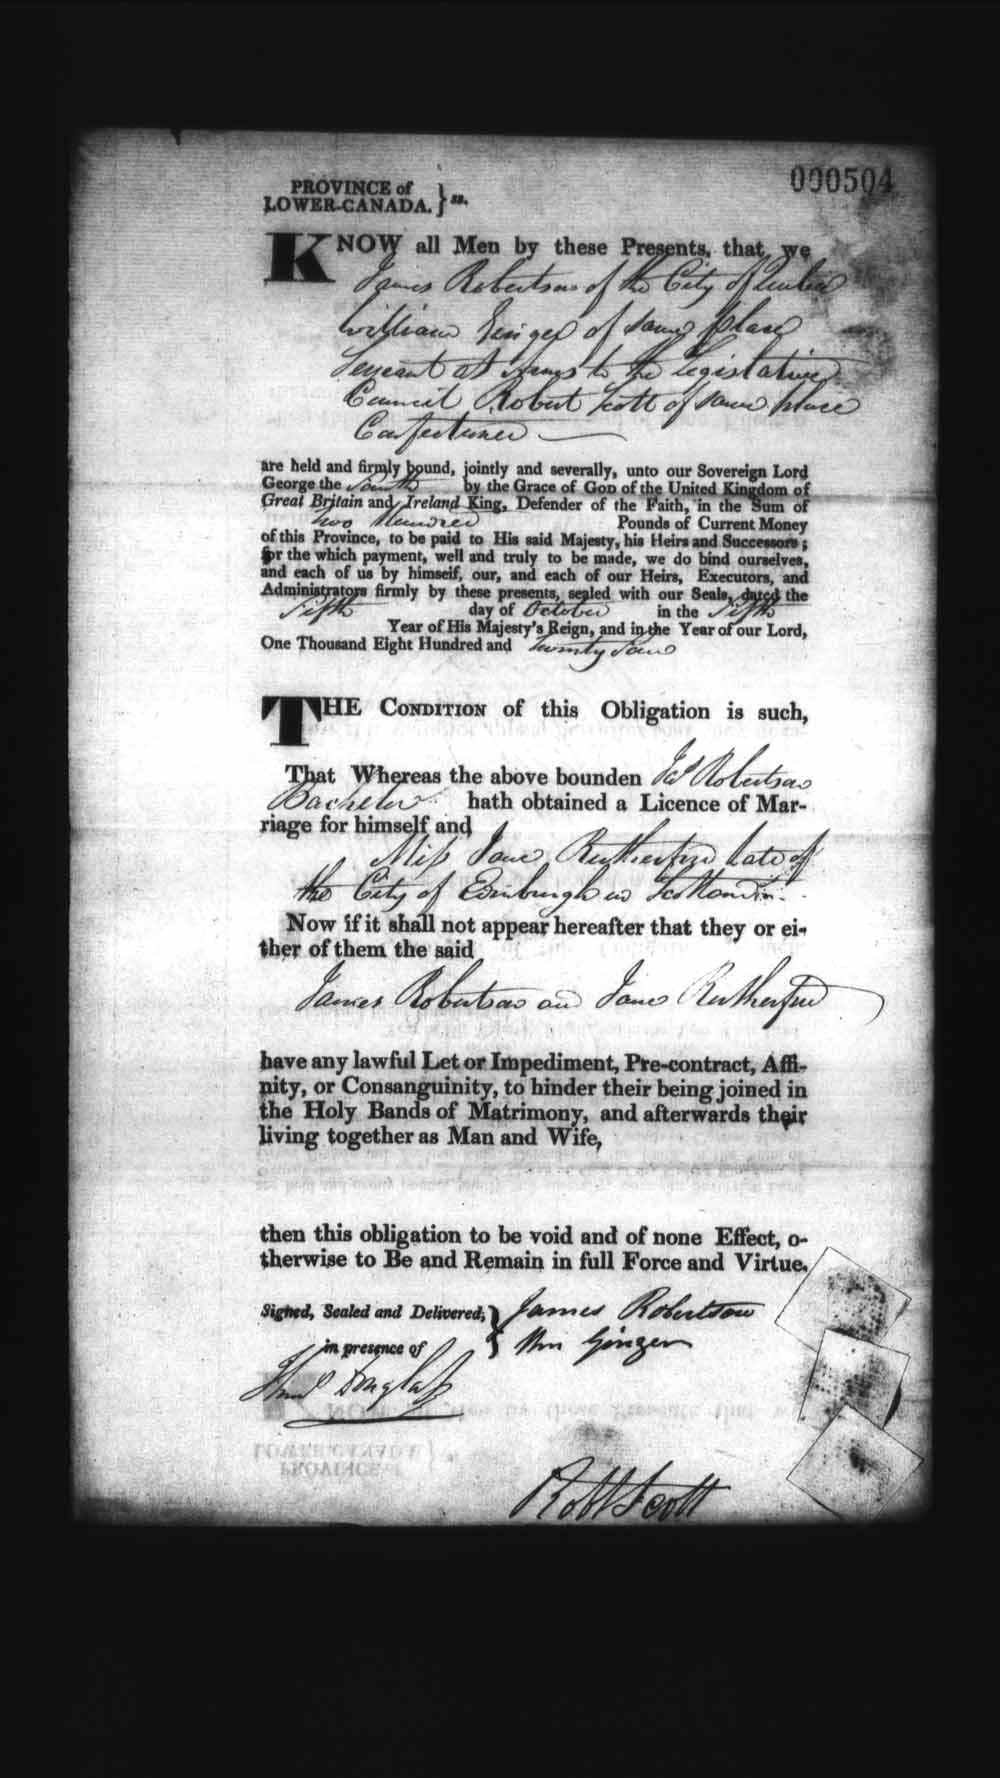 000504
PROVINCE of
LOWER-CANADA. } ss.
KNOW all Men by these Presents, that we
James Robertson of the City of Quebec
William Ginger of same place
Serjeant at Arms to the Legislative
Council Robert Scott of same place
Confectioner
are held and firmly bound, jointly and severally, unto our Sovereign Lord
George the Fourth by the Grace of GOD of the United Kingdom of
Great Britain and Ireland King, Defender of the Faith, in the Sum of
Two Hundred Pounds of Current Money
of this Province, to be paid to His said Majesty, his Heirs and Successors;
for the which payment, well and truly to be made, we do bind ourselves,
and each of us by himself, our, and each of our Heirs, Executors, and
Administrators firmly by these presents, sealed with our Seals, dated the
Fifth day of October in the Fifth
Year of His Majesty's Reign, and in the Year of our Lord,
One Thousand Eight Hundred and twenty four
THE CONDITION of this Obligation is such,
That Whereas the above bounden Jas Robertson
Bachelor hath obtained a Licence of Mar-
riage for himself and
Miss Jane Rutherford late of
the City of Edinburgh in Scotland
Now if it shall not appear hereafter that they or ei-
ther of them the said
James Robertson and Jane Rutherford
have any lawful Let or Impediment, Pre-contract, Affi-
nity, or Consanguinity, to hinder their being joined in
the Holy Bands of Matrimony, and afterwards their
living together as Man and Wife,
then this obligation to be void and of none Effect, o-
therwise to Be and Remain in full Force and Virtue.
Signed, Sealed and Delivered, } James Robertson
in presence of } Wm Ginger
Douglass
Robt Scott